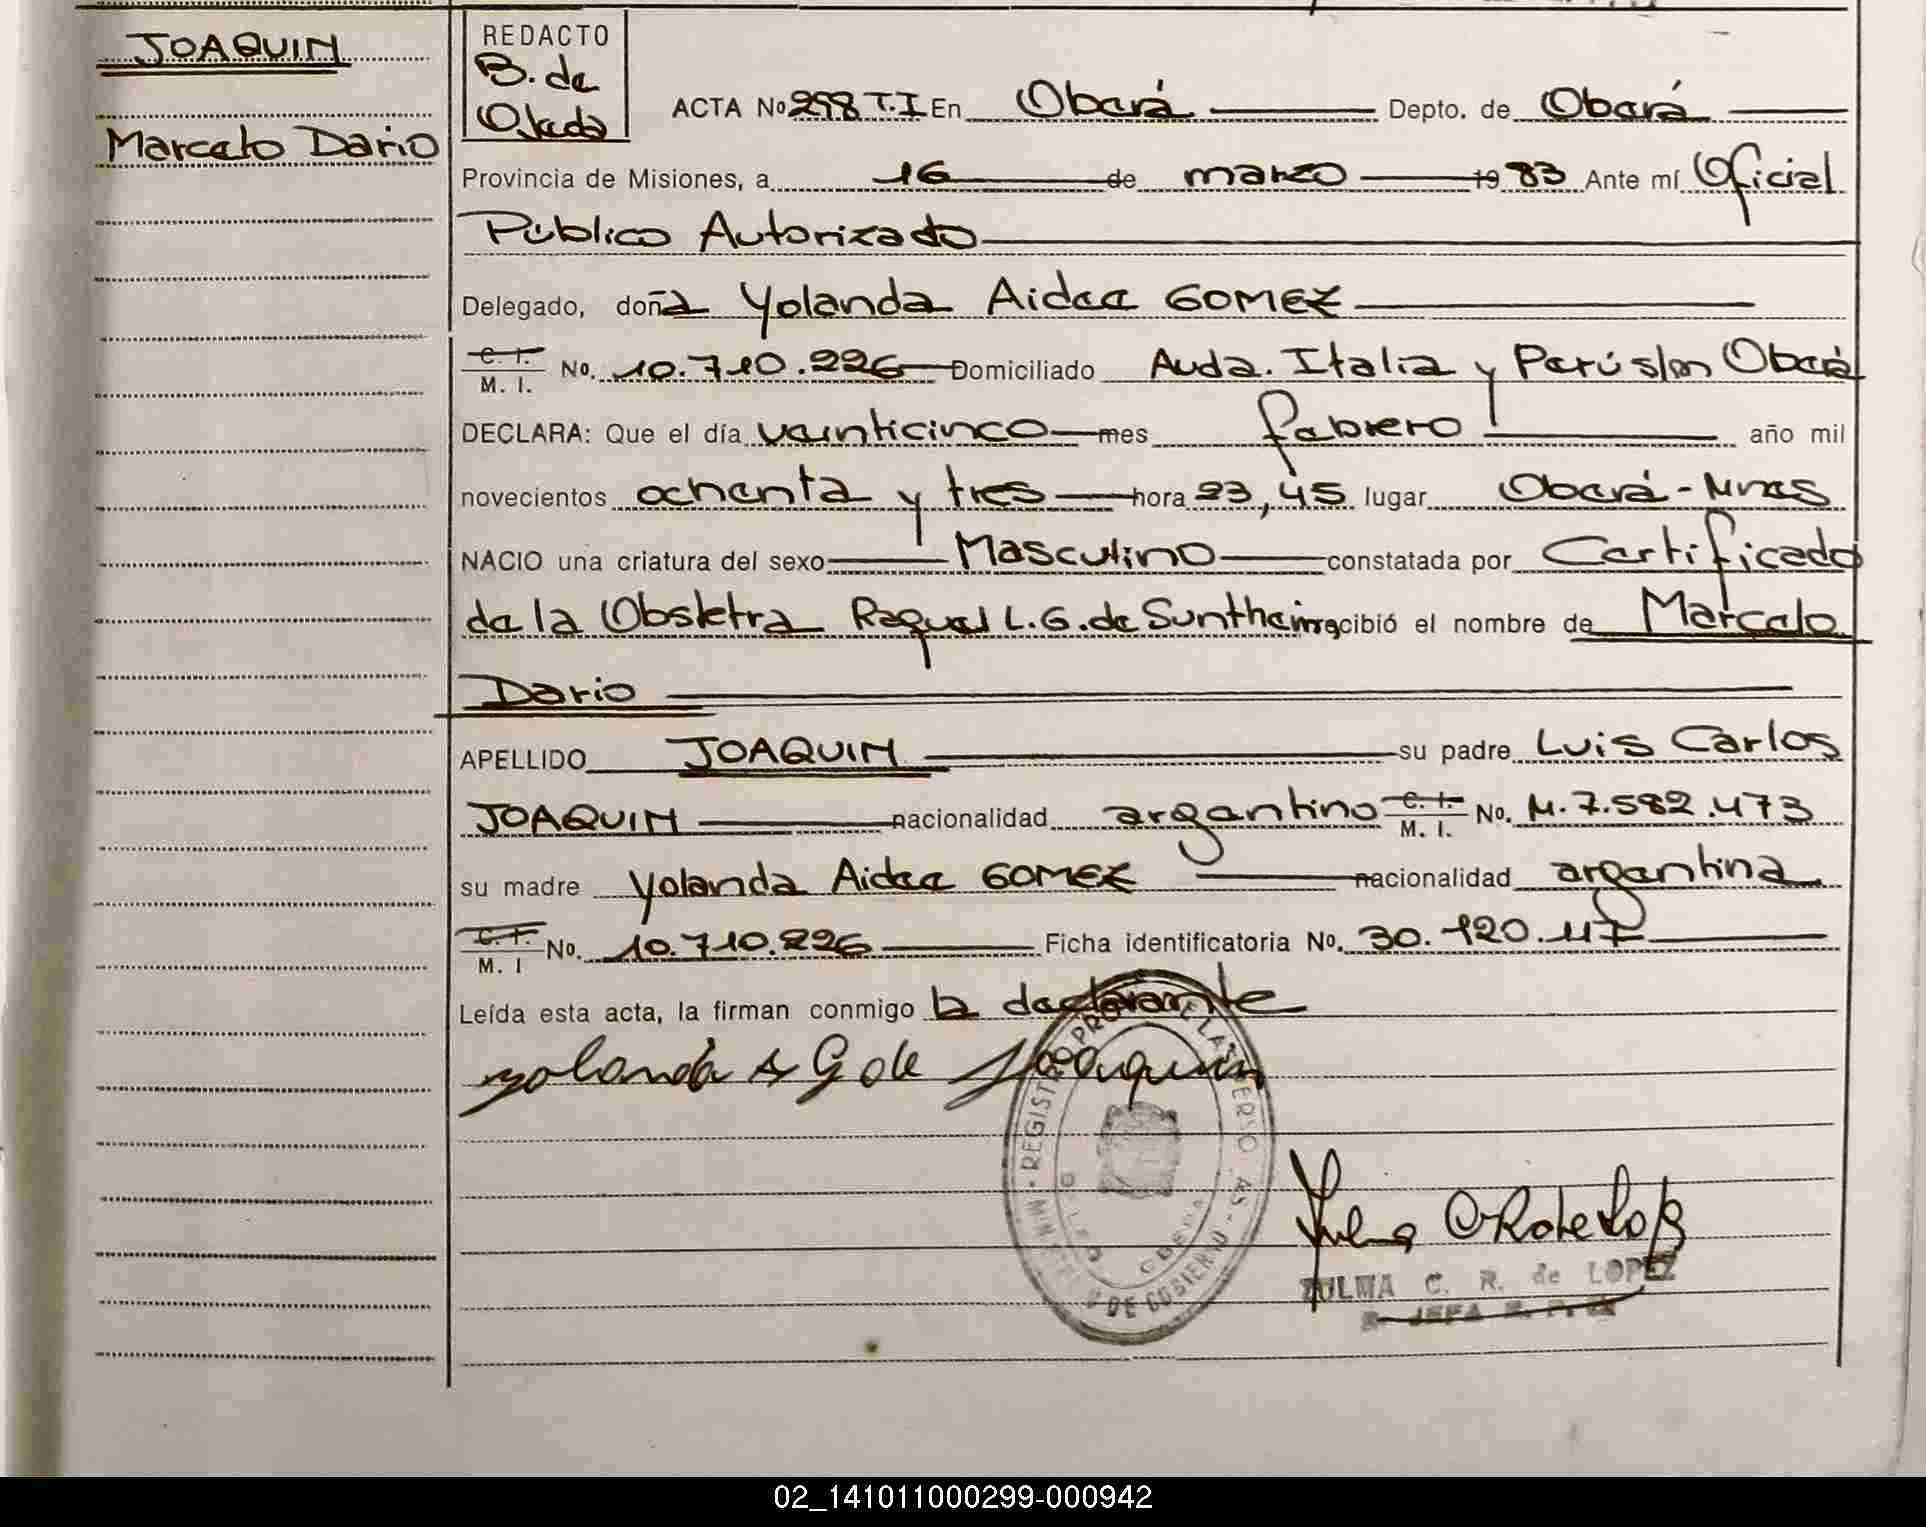 JOAQUIN
Marcelo Dario
REDACTO
B. de
Ojeda
ACTA No 298 T.I En Oberá Depto. de Oberá
Provincia de Misiones, a 16 de marzo 1983 Ante mí Oficial
Público Autorizado
Delegado, doña Yolanda Aidee GOMEZ
C. I.
M. I. No. 10.710.226 Domiciliado Avda. Italia y Perú s/n Oberá
DECLARA: Que el día veinticinco mes febrero año mil
novecientos ochenta y tres hora 23,45 lugar Oberá-Mnes
NACIO una criatura del sexo Masculino constatada por Certificado
de la Obstetra Raquel L.G. de Suntheim recibió el nombre de Marcelo
Dario
APELLIDO JOAQUIN su padre Luis Carlos
JOAQUIN nacionalidad argentino C. I. M. I. No. M. 7.582.473
su madre Yolanda Aidee GOMEZ nacionalidad argentina
C. I.
M. I No. 10.710.226 Ficha identificatoria No. 30.120.117
Leída esta acta, la firman conmigo la declarante
Yolanda A G de Joaquin
REGISTRO PROV. DE LAS PERSONAS
DE GOBIERNO
OBERA
ZULMA C. R. de LOPEZ
02_141011000299-000942